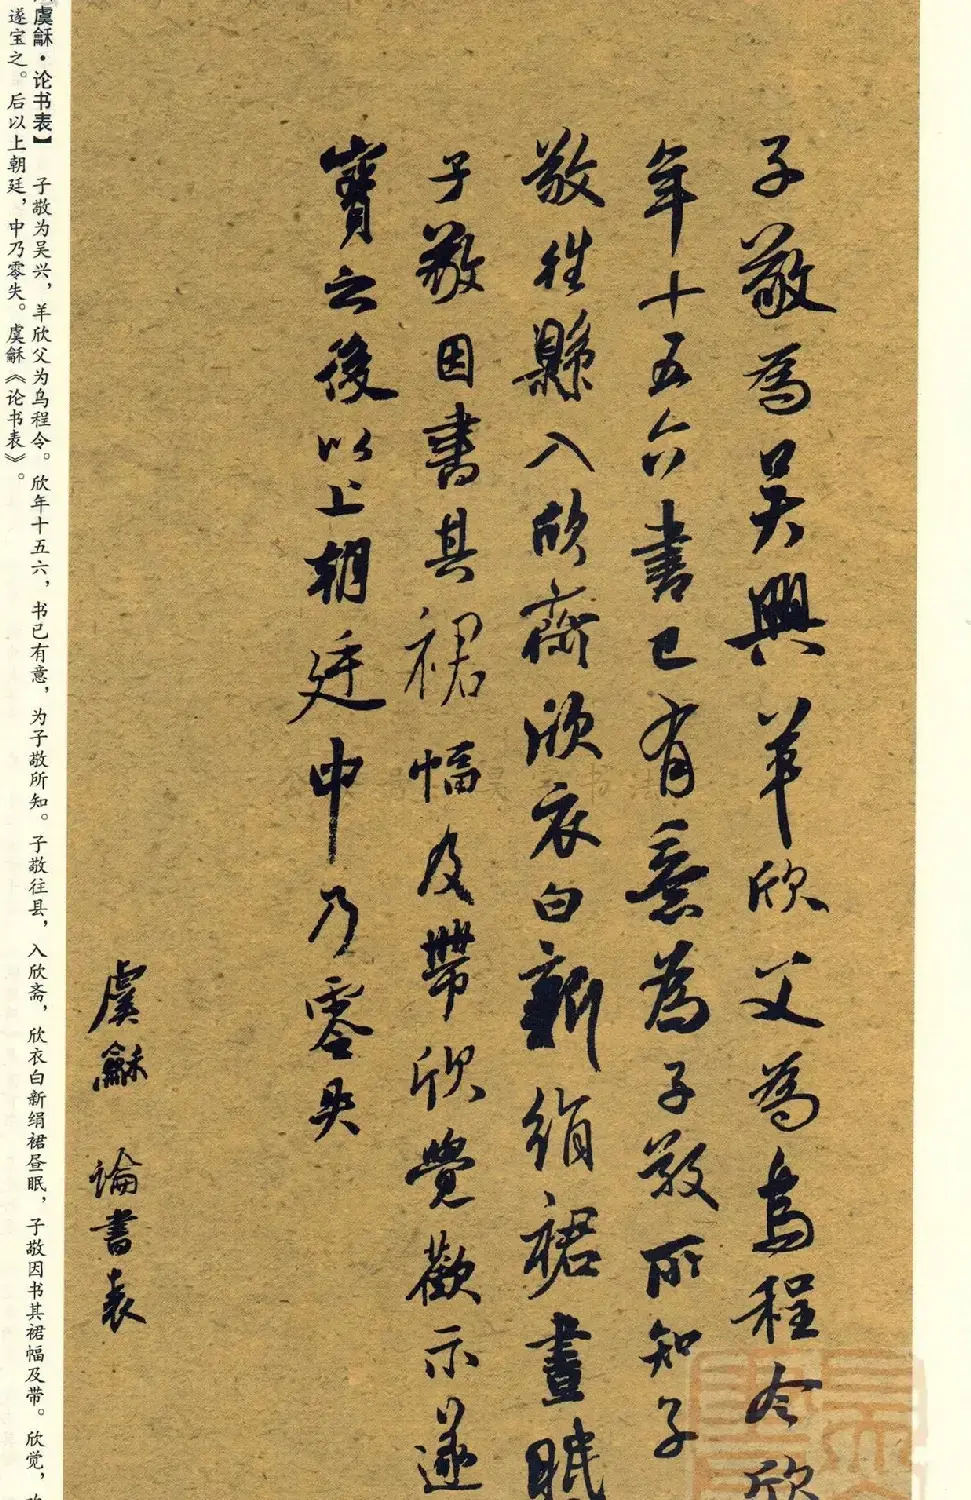 子敬为吴興羊欣父为烏程令欣
年十五六書已有意为子敬所知子
敬往縣入欣齋欣衣白新絹裙晝眠
子敬因書其裙幅及帶欣覺歡示遂
寶之後以上朝廷中乃零失
虞龢 論書表
虞龢·论书表】 子敬为吴兴，羊欣父为乌程令。欣年十五六，书已有意，为子敬所知。子敬往县，入欣斋，欣衣白新绢裙昼眠，子敬因书其裙幅及带。欣觉，
遂宝之。后以上朝廷，中乃零失。虞龢《论书表》。